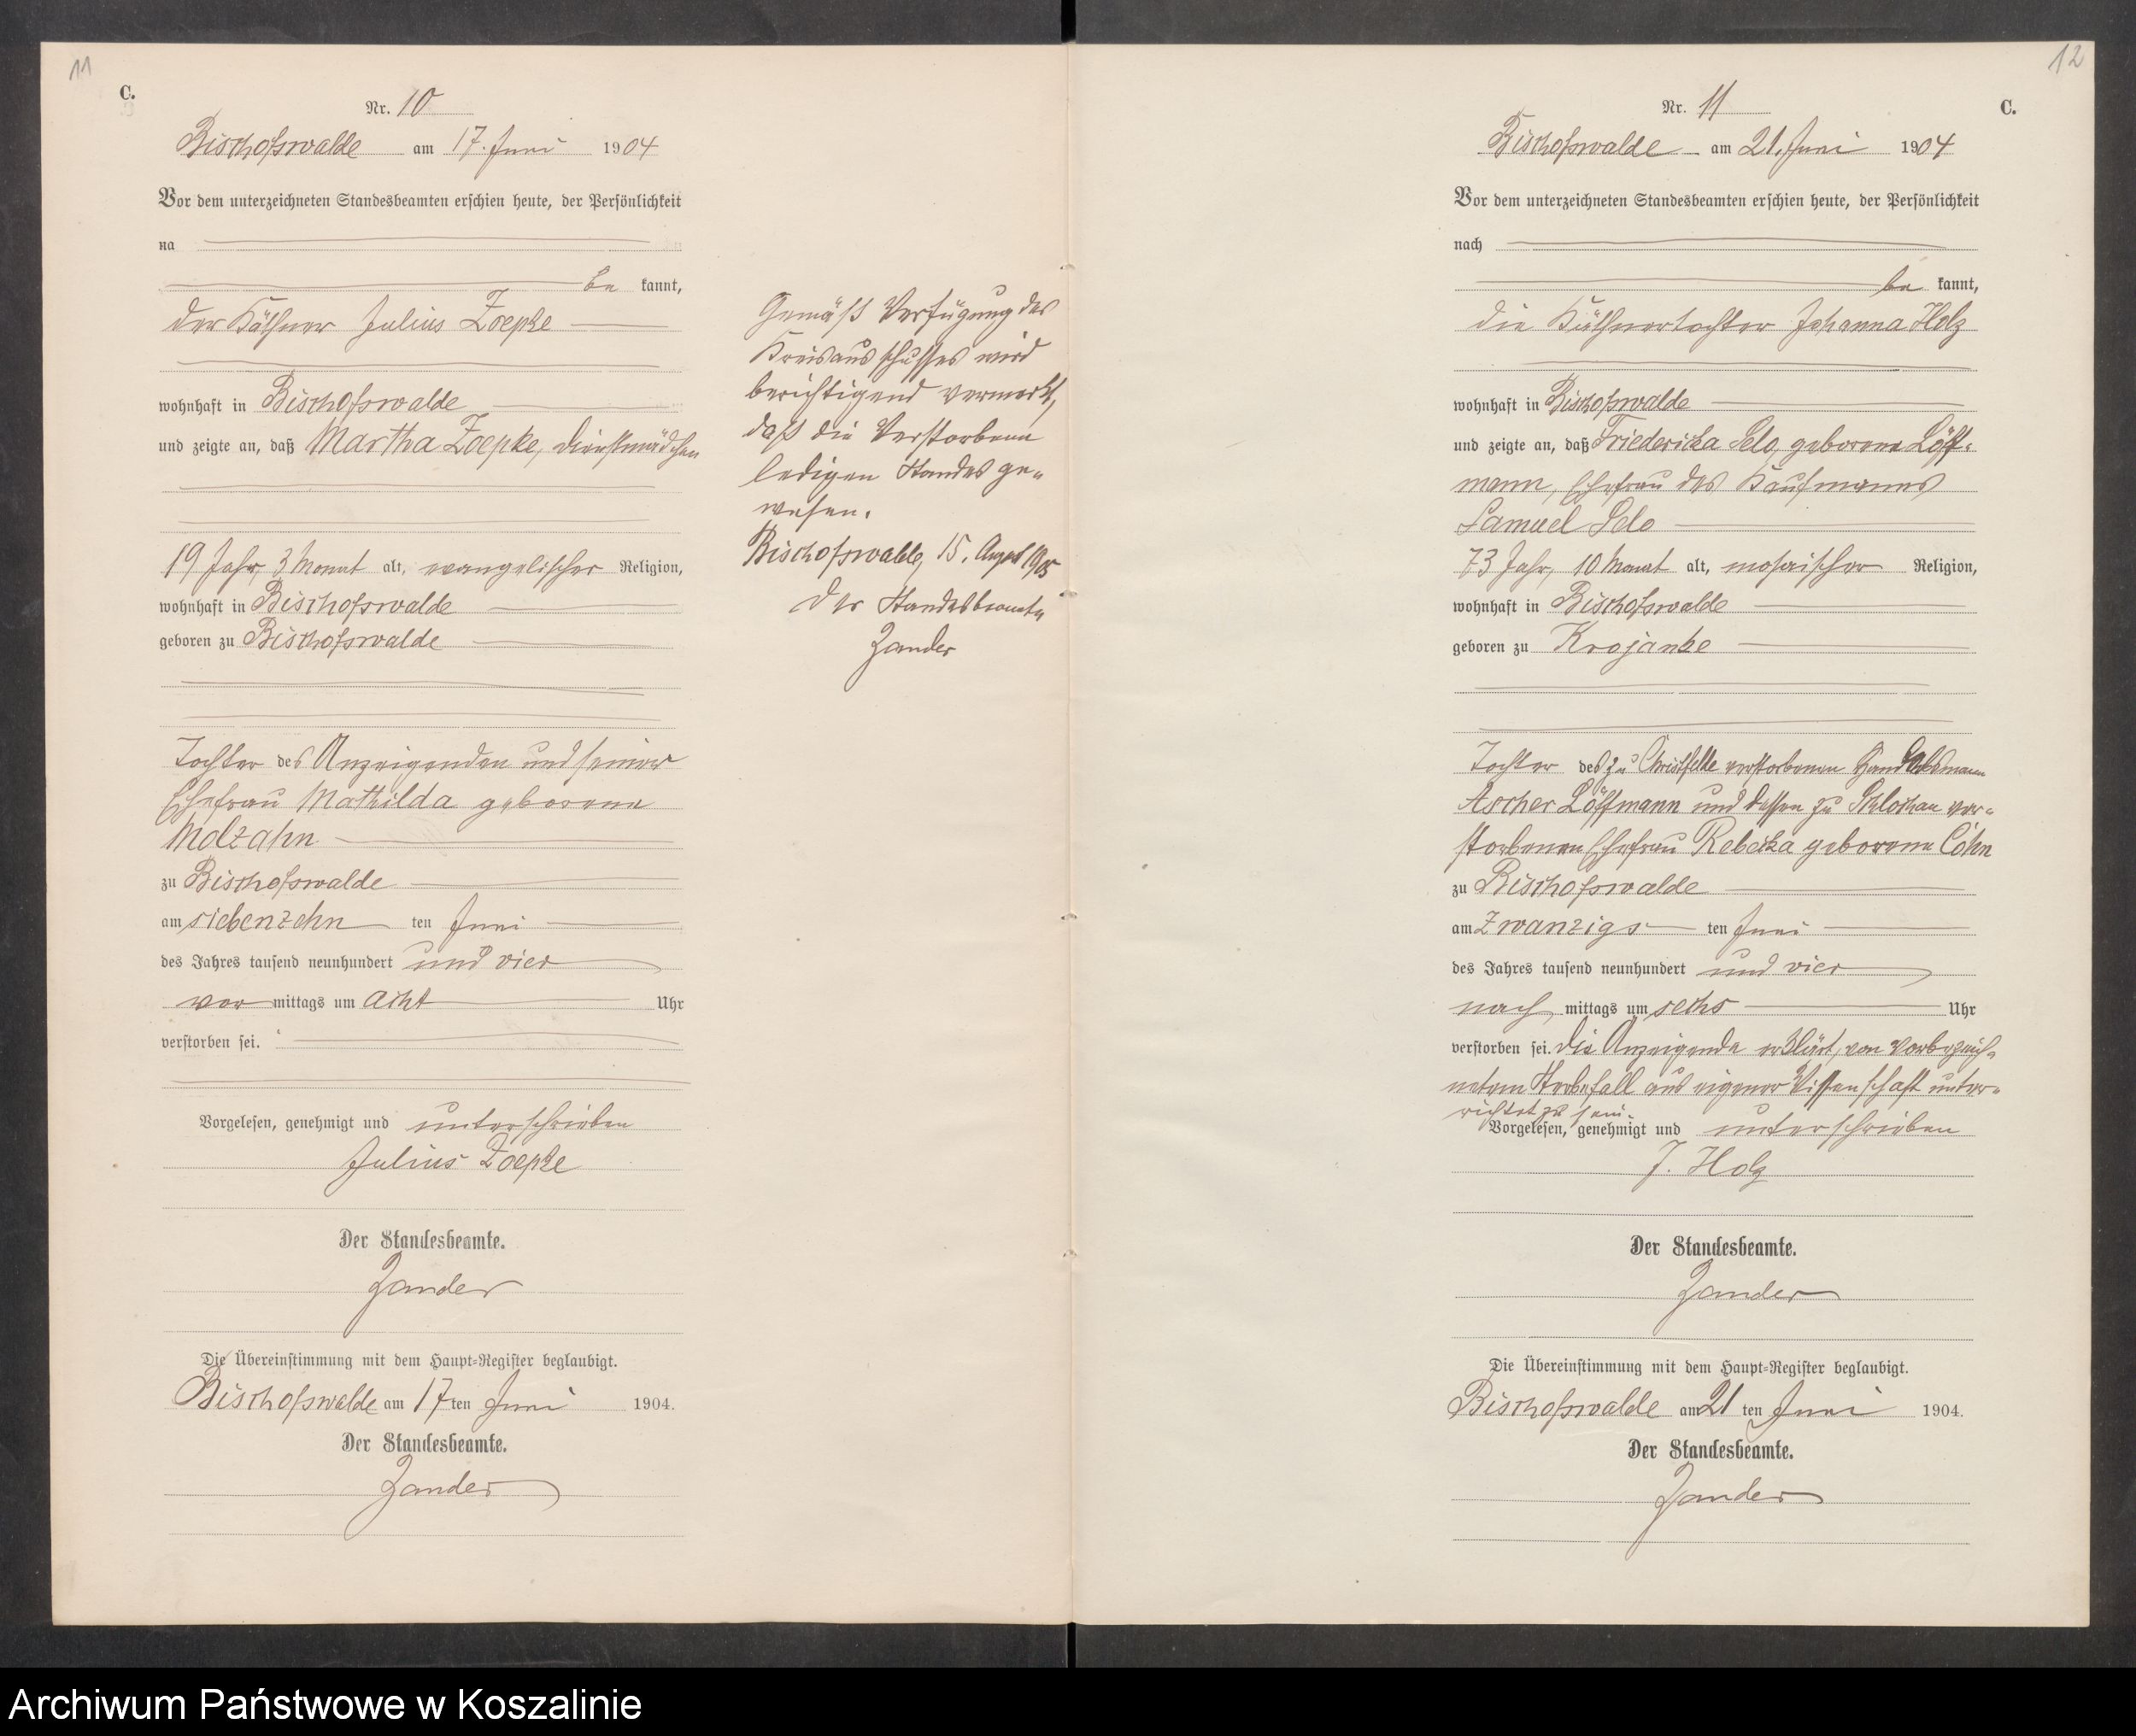 11
C.
Nr. 10
Bischofswalde am 17. Juni 1904
Vor dem unterzeichneten Standesbeamten erschien heute, der Persönlichkeit
na
be kannt,
der Käthner Julius Zoepke
wohnhaft in Bischofswalde
und zeigte an, daß Martha Zoepke, Dienstmädchen
19 Jahr, 3 Monat alt, evangelischer Religion,
wohnhaft in Bischofswalde
geboren zu Bischofswalde
Tochter des Anzeigenden und seiner
Ehefrau Mathilda geborene
Molzahn
zu Bischofswalde
am siebenzehn ten Juni
des Jahres tausend neunhundert und vier
vor mittags um acht Uhr
verstorben sei.
Vorgelesen, genehmigt und unterschrieben
Julius Zoepke
Der Standesbeamte.
Zander
Die Übereinstimmung mit dem Haupt-Register beglaubigt.
Bischofswalde am 17 ten Juni 1904.
Der Standesbeamte.
Zander
Gemäß Verfügung des
Kreisausschusses wird
berichtigend vermerkt,
daß die Verstorbene
ledigen Standes ge-
wesen.
Bischofswalde, 15. August 1905
Der Standesbeamte
Zander
12
C.
Nr. 11
Bischofswalde am 21. Juni 1904
Vor dem unterzeichneten Standesbeamten erschien heute, der Persönlichkeit
nach
be kannt,
die Käthnertochter Johanna Holz
wohnhaft in Bischofswalde
und zeigte an, daß Friedericka Selo, geborene Löff-
mann, Ehefrau des Kaufmanns
Samuel Selo
73 Jahr, 10 Monat alt, mosaischer Religion,
wohnhaft in Bischofswalde
geboren zu Krojanke
Tochter des zu Christfelde verstorbenen Handelsmann
Ascher Löffmann und dessen zu Schlochau ver-
storbenen Ehefrau Rebecka geborene Cohn
zu Bischofswalde
am zwanzigs ten Juni
des Jahres tausend neunhundert und vier
nach mittags um sechs Uhr
verstorben sei. Die Anzeigende erklärt, von vorbezeich-
netem Sterbefall aus eigener Wissenschaft unter-
richtet zu sein.
Vorgelesen, genehmigt und unterschrieben
J. Holz
Der Standesbeamte.
Zander
Die Übereinstimmung mit dem Haupt-Register beglaubigt.
Bischofswalde am 21 ten Juni 1904.
Der Standesbeamte.
Zander
Archiwum Państwowe w Koszalinie